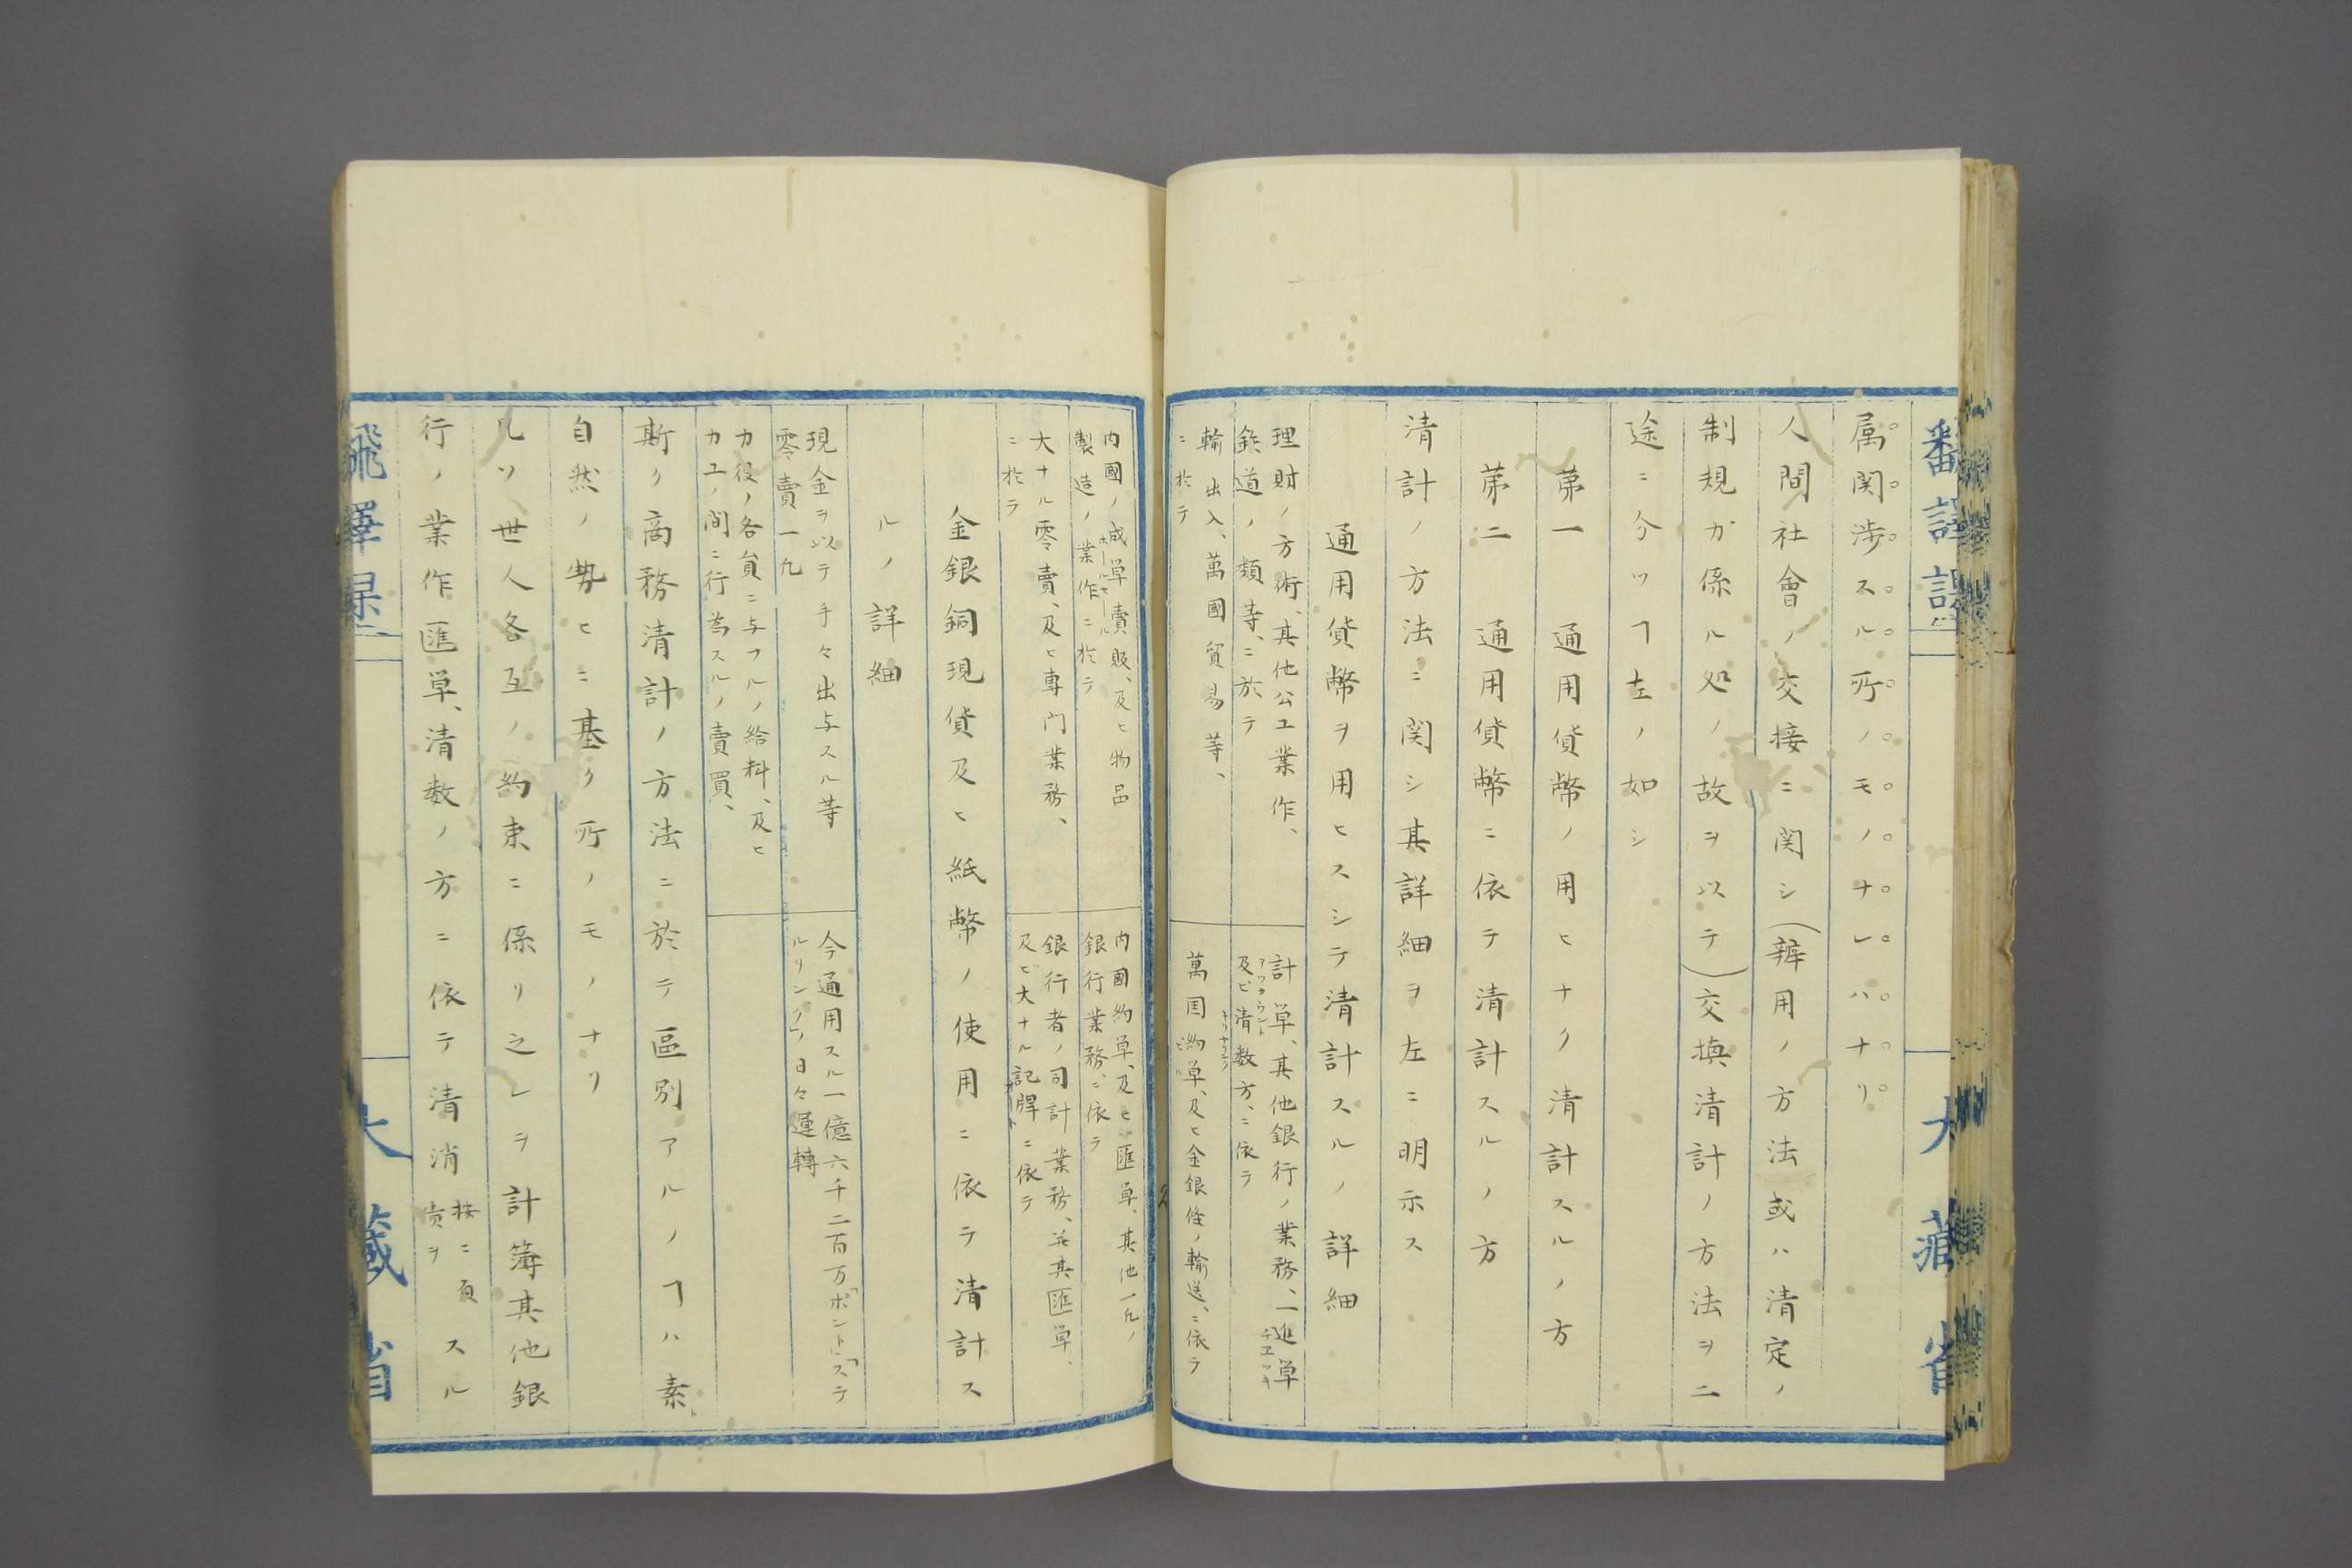 属関渉スル所ノモノナレハナリ
人間社會ノ交接ニ関シ(辨用ノ方法或ハ清定ノ
制規ガ係ル処ノ故ヲ以テ)交換清計ノ方法ヲ二
途ニ分ツヿ左ノ如シ
第一　通用貨幣ノ用ヒナク清計スルノ方
第二　通用貨幣ニ依テ清計スルノ方
清計ノ方法ニ関シ其詳細ヲ左ニ明示ス
通用貨幣ヲ用ヒスシテ清計スルノ詳細
理財ノ方術、其他公工業作、
鉄道ノ類等、ニ於テ
計単、其他銀行ノ業務、一進単
アッカウント
チエッキ
及ビ清数方、ニ依テ
輸出入、萬國貿易等、
ニ於テ
萬囯約単、及ヒ金銀條ノ輸送、ニ依テ
内國ノ域単賣販、及ヒ物品
ホールセール
製造ノ業作ニ於テ
内國約単、及ヒ匯単、其他一凡ノ
銀行業務、ニ依テ
大ナル零賣、及ヒ専門業務、
ニ於テ
銀行者ノ司計業務、并其匯単、
及ビ大ナル記牌ニ依テ
金銀銅現貨及ヒ紙幣ノ使用ニ依テ清計ス
ルノ詳細
現金ヲ以テ手々出与スル等
零賣一凡
今通用スル一億六千二百万「ポント」「ステ
ルリング」ノ日々運轉
力役ノ各員ニ与フルノ給料、及ヒ
力工ノ間ニ行為スルノ賣買、
斯ク商務清計ノ方法ニ於テ區別アルノヿハ素
自然ノ勢ヒニ基ク所ノモノナリ
凡ソ世人各互ノ約束ニ係リ之レヲ計簿其他銀
行ノ業作匯単、清数ノ方ニ依テ清消
按ニ負
責ヲ
スル
飜譯課
大藏省